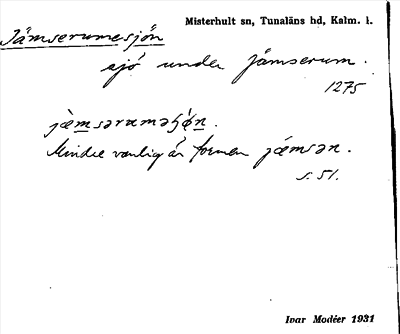 Misterhult sn, Tunaläns hd, Kalm. l.
Jämserumesjön
sjö under Jämserum.
1275
jæmsəruməʂǿn.
Mindre vanlig är formen jǽmsən.
s. 51.
Ivar Modéer 1931